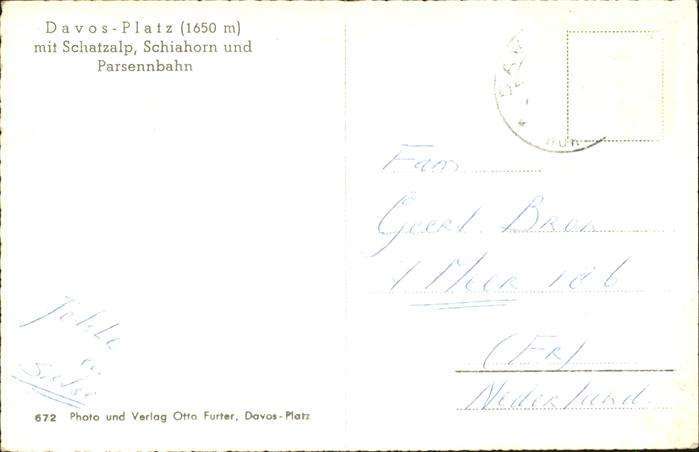 Davos-Platz (1650 m)
mit Schatzalp, Schiahorn und
Parsennbahn
Fam
Geert Bron
't Meer 106
(Fr)
Nederland.
en
672 Photo und Verlag Otto Furter, Davos-Platz